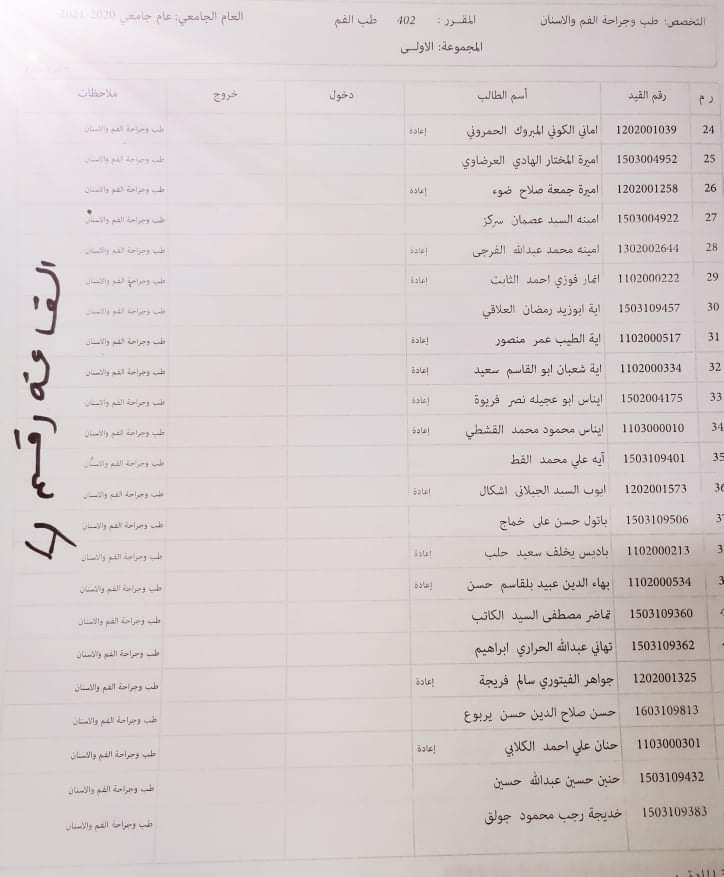 التخصص: طب وجراحة الفم والاسنان المقرر: 402 طب الفم العام الجامعي: عام جامعي 2020-2021
المجموعة: الاولى
ر م رقم القيد أسم الطالب دخول خروج ملاحظات
24 1202001039 اماني الكوني المبروك الحمروني إعادة طب وجراحة الفم والاسنان
25 1503004952 اميرة المختار الهادي العرضاوي طب وجراحة الفم والاسنان
26 1202001258 اميرة جمعة صلاح ضوء إعادة طب وجراحة الفم والاسنان
27 1503004922 امينه السيد عصمان سركز طب وجراحة الفم والاسنان
28 1302002644 امينه محمد عبدالله الفرجى إعادة طب وجراحة الفم والاسنان
29 1102000222 انمار فوزي احمد الثابت إعادة طب وجراحة الفم والاسنان
30 1503109457 اية ابوزيد رمضان العلاقي طب وجراحة الفم والاسنان
31 1102000517 اية الطيب عمر منصور إعادة طب وجراحة الفم والاسنان
32 1102000334 اية شعبان ابو القاسم سعيد إعادة طب وجراحة الفم والاسنان
33 1502004175 ايناس ابو عجيله نصر فريوة إعادة طب وجراحة الفم والاسنان
34 1103000010 ايناس محمود محمد القشطي إعادة طب وجراحة الفم والاسنان
35 1503109401 آيه علي محمد القط طب وجراحة الفم والاسنان
36 1202001573 ايوب السيد الجيلانى اشكال إعادة طب وجراحة الفم والاسنان
3 1503109506 باتول حسن على خماج طب وجراحة الفم والاسنان
3 1102000213 باديس يخلف سعيد حلب إعادة طب وجراحة الفم والاسنان
3 1102000534 بهاء الدين عبيد بلقاسم حسن إعادة طب وجراحة الفم والاسنان
1503109360 تماضر مصطفى السيد الكاتب طب وجراحة الفم والاسنان
1503109362 تهاني عبدالله الحراري ابراهيم طب وجراحة الفم والاسنان
1202001325 جواهر الفيتوري سالم فريجة إعادة طب وجراحة الفم والاسنان
1603109813 حسن صلاح الدين حسن يربوع طب وجراحة الفم والاسنان
1103000301 حنان علي احمد الكلابي إعادة طب وجراحة الفم والاسنان
1503109432 حنين حسين عبدالله حسين طب وجراحة الفم والاسنان
1503109383 خديجة رجب محمود جولق طب وجراحة الفم والاسنان
القاعة رقم 4